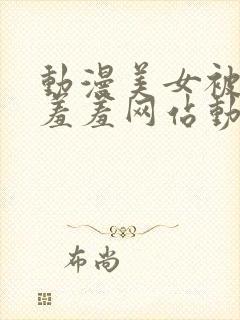 動漫美女被
羞羞网佔動
布尚